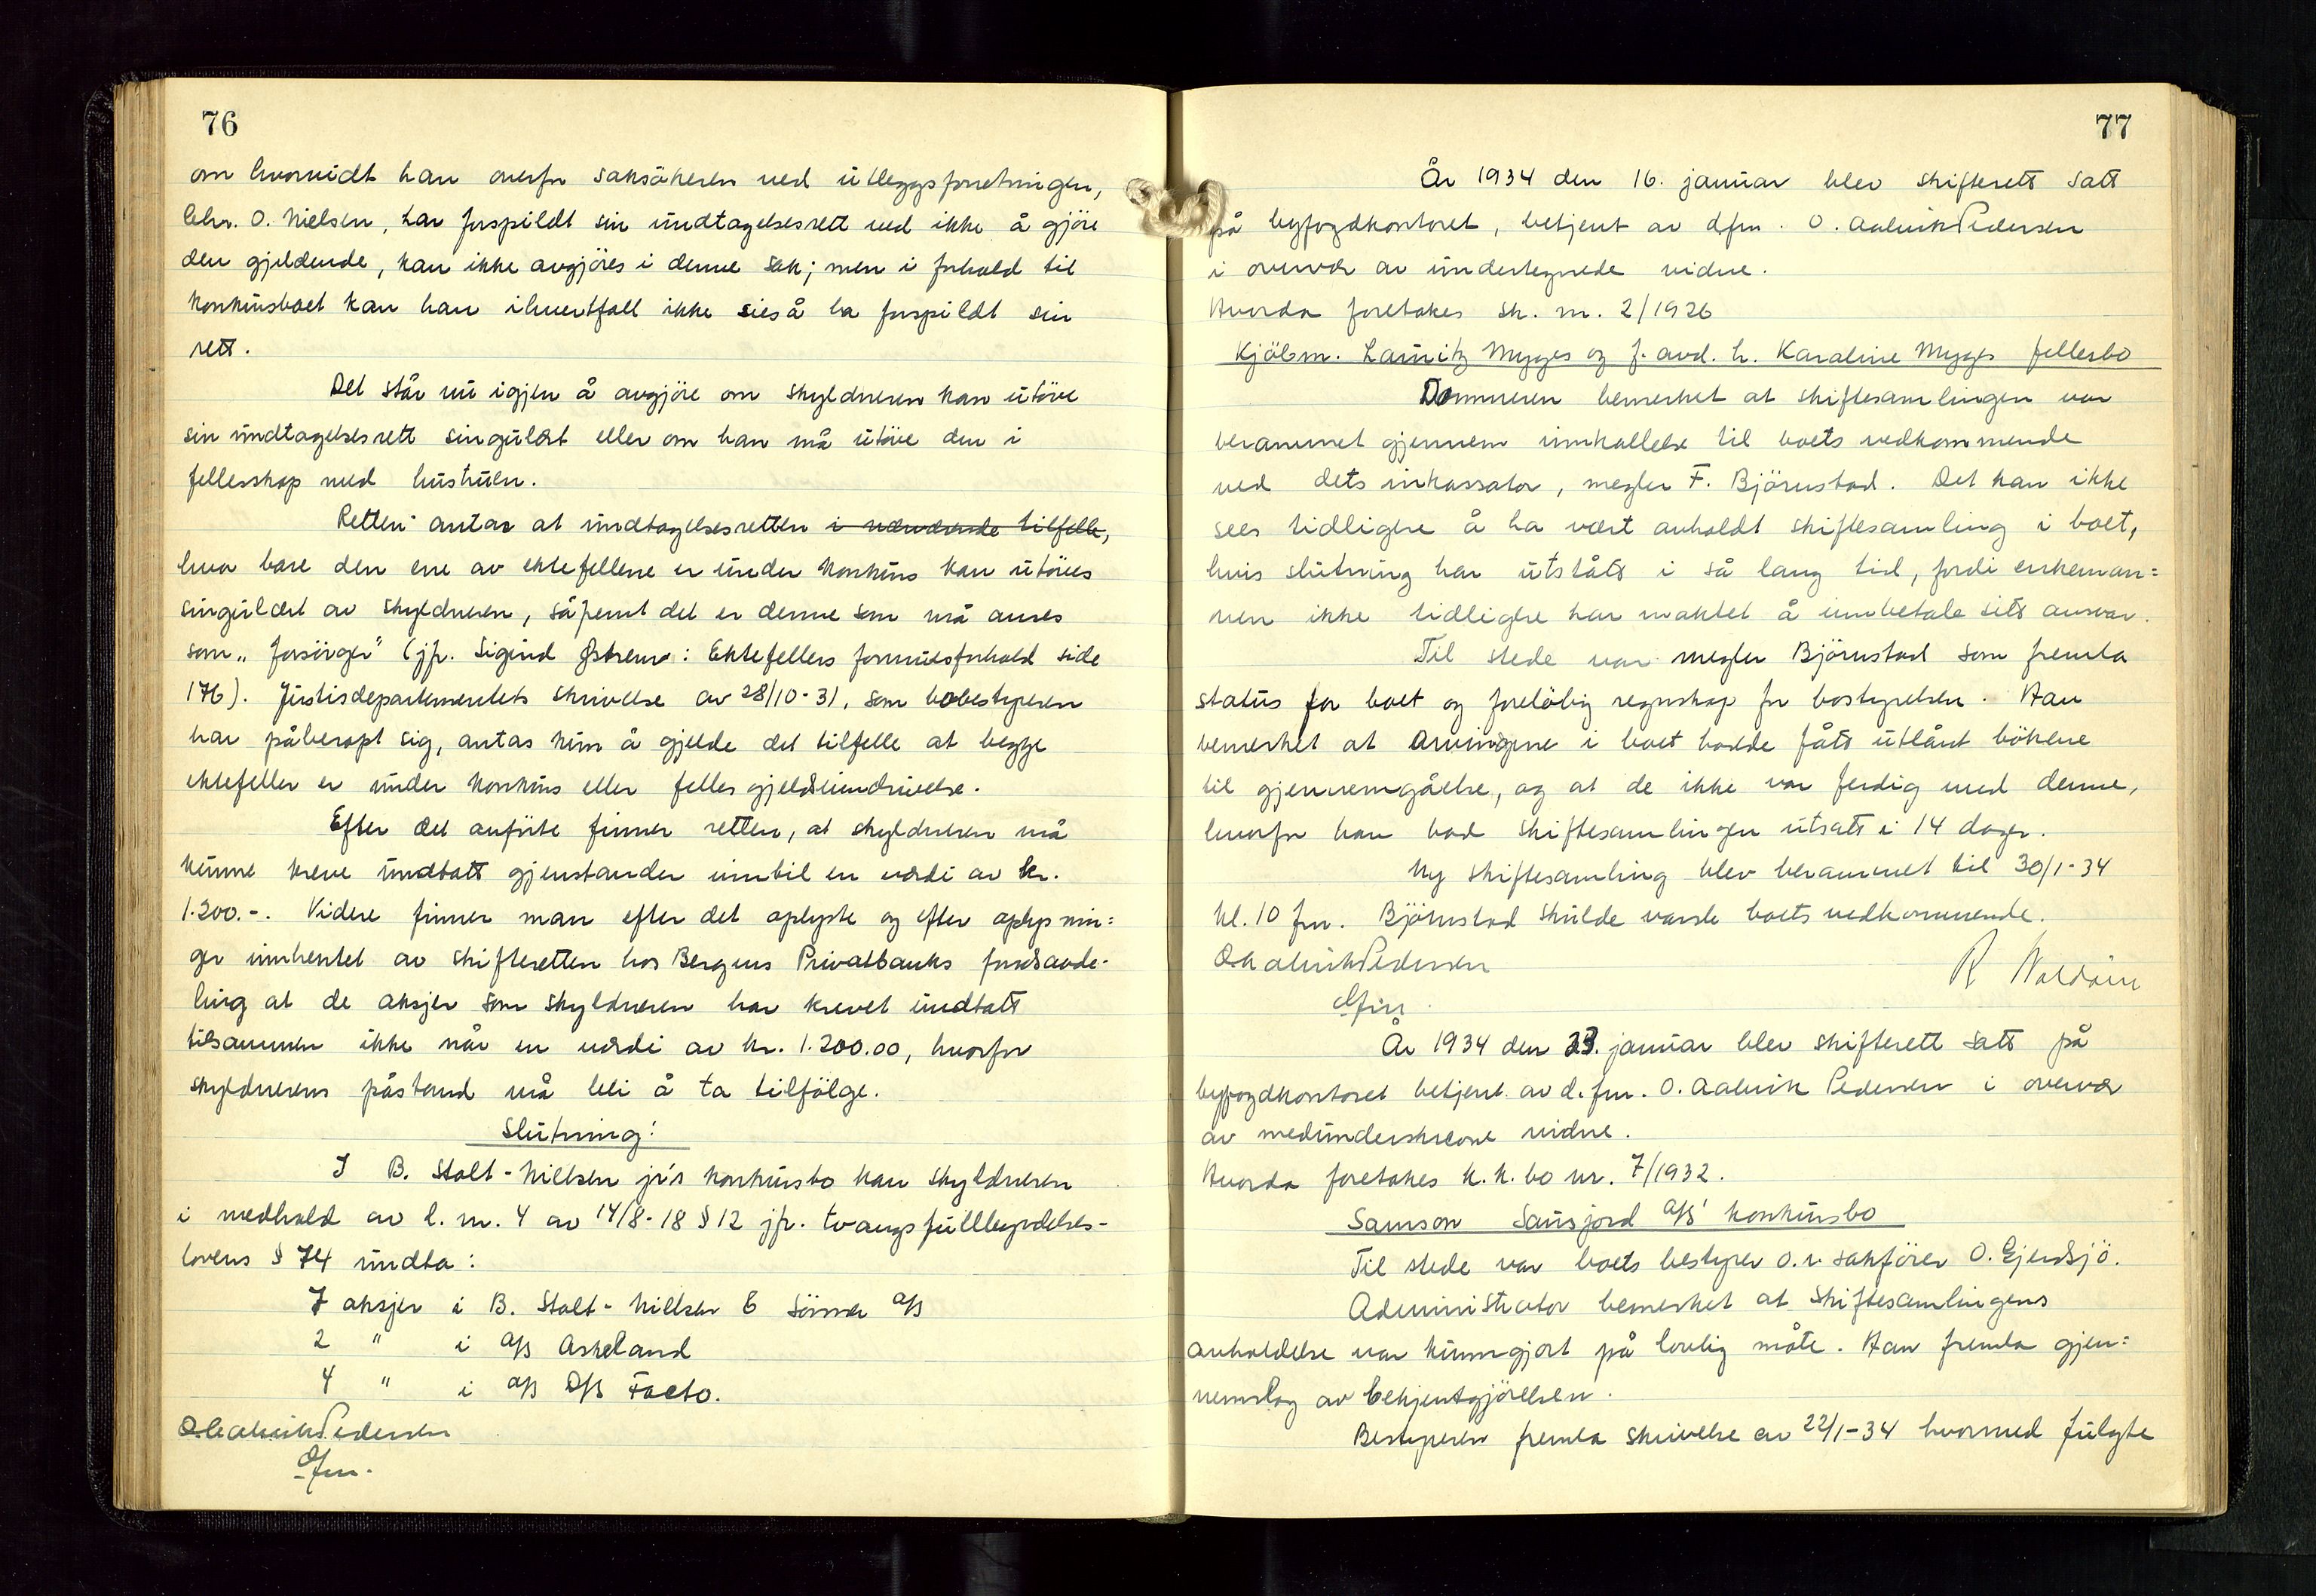 76
om hvorvidt han overfor saksökeren ved utleggsforretningen,
Chr. O. Nielsen, har forspildt sin undtagelsesrett ved ikke å gjöre
den gjeldende, kan ikke avgjöres i denne sak; men i forhold til
konkursboet kan han ihvertfall ikke sies å ha forspildt sin
rett.
Det står nu igjen å avgjöre om skyldneren kan utöve
sin undtagelsesrett singulært eller om han må utöve den i
fellesskap med hustruen.
Retten antar at undtagelsesretten i nærværende tilfelle,
hvor bare den ene av ektefellene er under konkurs kan utöves
singulært av skyldneren, såfremt det er denne som må anses
som "forsörger" (jfr. Sigurd Østrem: Ektefellers formuesforhold side
176). Justisdepartementets skrivelse av 28/10-31, som bobestyreren
har påberopt sig, antas kun å gjelde det tilfelle at begge
ektefeller er under konkurs eller felles gjeldsinndrivelse.
Efter det anförte finner retten, at skyldneren må
kunne kreve undtatt gjenstander inntil en verdi av kr.
1.200.-. Videre finner man efter det oplyste og efter oplysnin=
ger innhentet av skifteretten hos Bergens Privatbanks fondsavde-
ling at de aksjer som skyldneren har krevet undtatt
tilsammen ikke når en verdi av kr. 1.200.00, hvorfor
skyldnerens påstand må bli å ta tilfölge.
Slutning:
I B. Stolt-Nielsen jr's konkursbo kan skyldneren
i medhold av l. nr. 4 av 14/8-18 § 12 jfr. tvangsfullbyrdelses-
lovens § 74 undta:
7 aksjer i B. Stolt-Nielsen & Sönner A/S
2 " i A/S Askeland
4 " i A/S D/S Facto.
O. Aalvik Pedersen
dfm.
77
År 1934 den 16. januar blev skifterett satt
på byfogdkontoret, betjent av dfm. O. Aalvik Pedersen
i overvær av undertegnede vidne.
Hvorda foretokes sk. nr. 2/1926
Kjöbm. Lauritz Mygges og f. avd. h. Karoline Mygges fellesbo
Dommeren bemerket at skiftesamlingen var
berammet gjennem innkallelse til boets vedkommende
ved dets inkassator, megler F. Björnstad. Det kan ikke
sees tidligere å ha vært anholdt skiftesamling i boet,
hvis slutning har utstått i så lang tid, fordi enkeman=
nen ikke tidligere har maktet å innbetale sitt ansvar.
Til stede var megler Björnstad som fremla
status for boet og forelöbig regnskap for bostyrelsen. Han
bemerket at arvingene i boet hadde fått utlånt bökene
til gjennemgåelse, og at de ikke var ferdig med denne,
hvorfor han bad skiftesamlingen utsatt i 14 dager.
Ny skiftesamling blev berammet til 30/1-34
kl. 10 fm. Björnstad skulde varsle boets vedkommende.
O. Aalvik Pedersen
R
dfm.
År 1934 den 23. januar blev skifterett satt på
byfogdkontoret betjent av d.fm. O. Aalvik Pedersen i overvær
av medunderskrevne vidne.
Hvorda foretokes k.k. bo nr. 7/1932.
Samson Sausjord A/S' konkursbo
Til stede var boets bestyrer o.r. sakförer O. Gjerdsjö.
Administrator bemerket at skiftesamlingens
anholdelse var kunngjort på lovlig måte. Han fremla gjen=
nemslag av bekjentgjörelsen.
Bestyreren fremla skrivelse av 22/1-34 hvormed fulgte